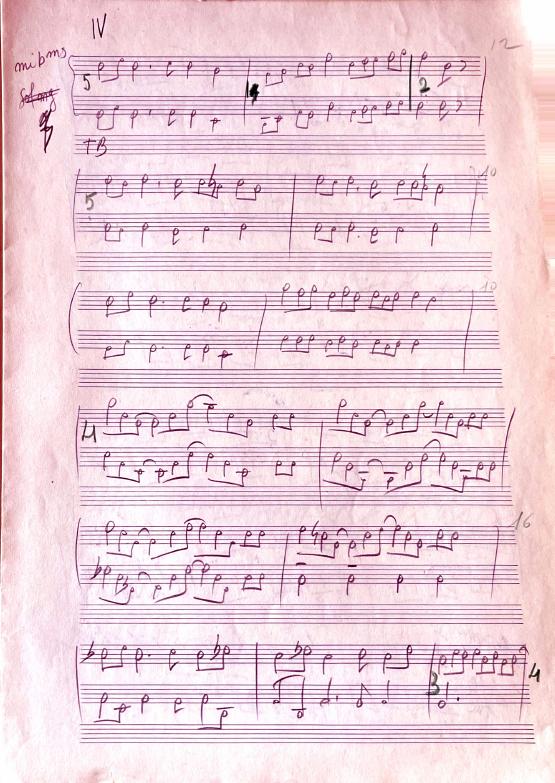 IV
12
mib ms
5 4 2
TB
10
5
10
4
16
3 4